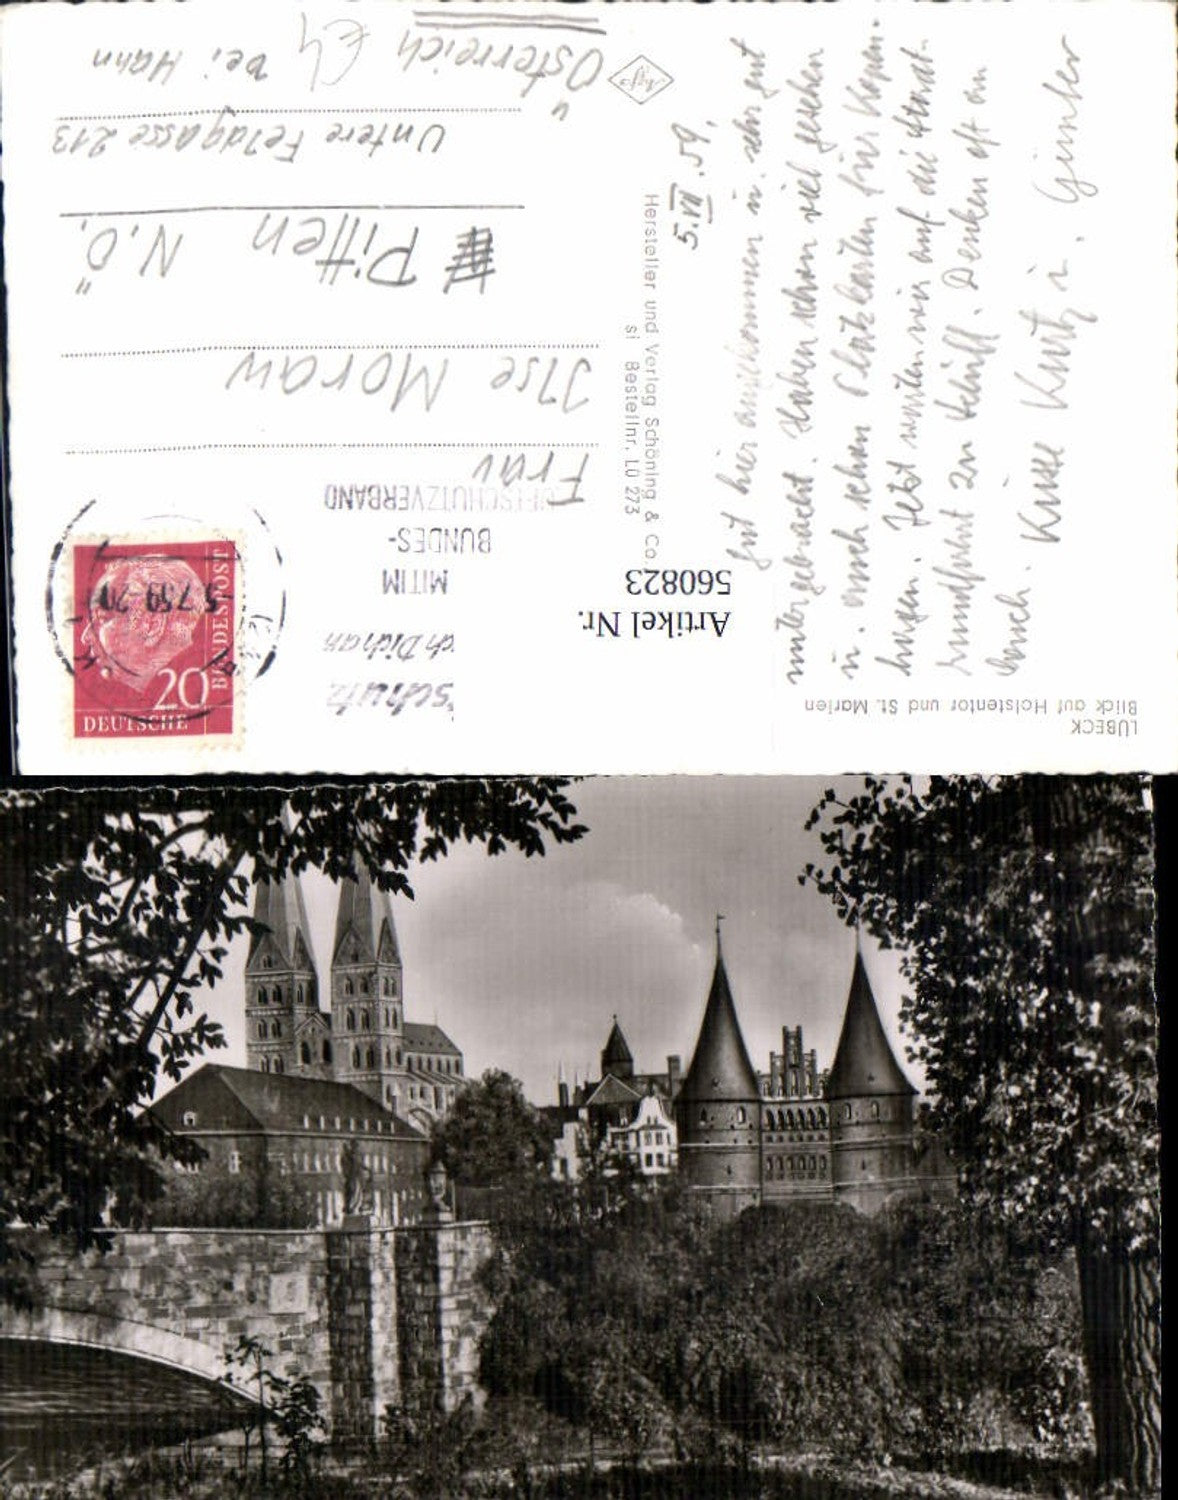 LÜBECK
Blick auf Holstentor und St. Marien
5. VII. 59.
Gut hier angekommen u. sehr gut
untergebracht. Haben schon viel gesehen
u. auch schon Platzkarten für Kopen-
hagen. Jetzt warten wir auf die
rundfahrt zu Schiff. Denken oft an
Euch. Kurtz u. Günter
Hersteller und Verlag Schöning & Co.,
si Bestellnr. Lü 273
Agfa
Artikel Nr.
560823
schutz
ch Dich an
MIT IM
BUNDES-
LUFTSCHUTZVERBAND
DEUTSCHE
BUNDESPOST
20
-5.7.59-20
Frau
Ilse Moraw
Pitten N.Ö.
Untere Feldgasse 213
Österreich bei Hann